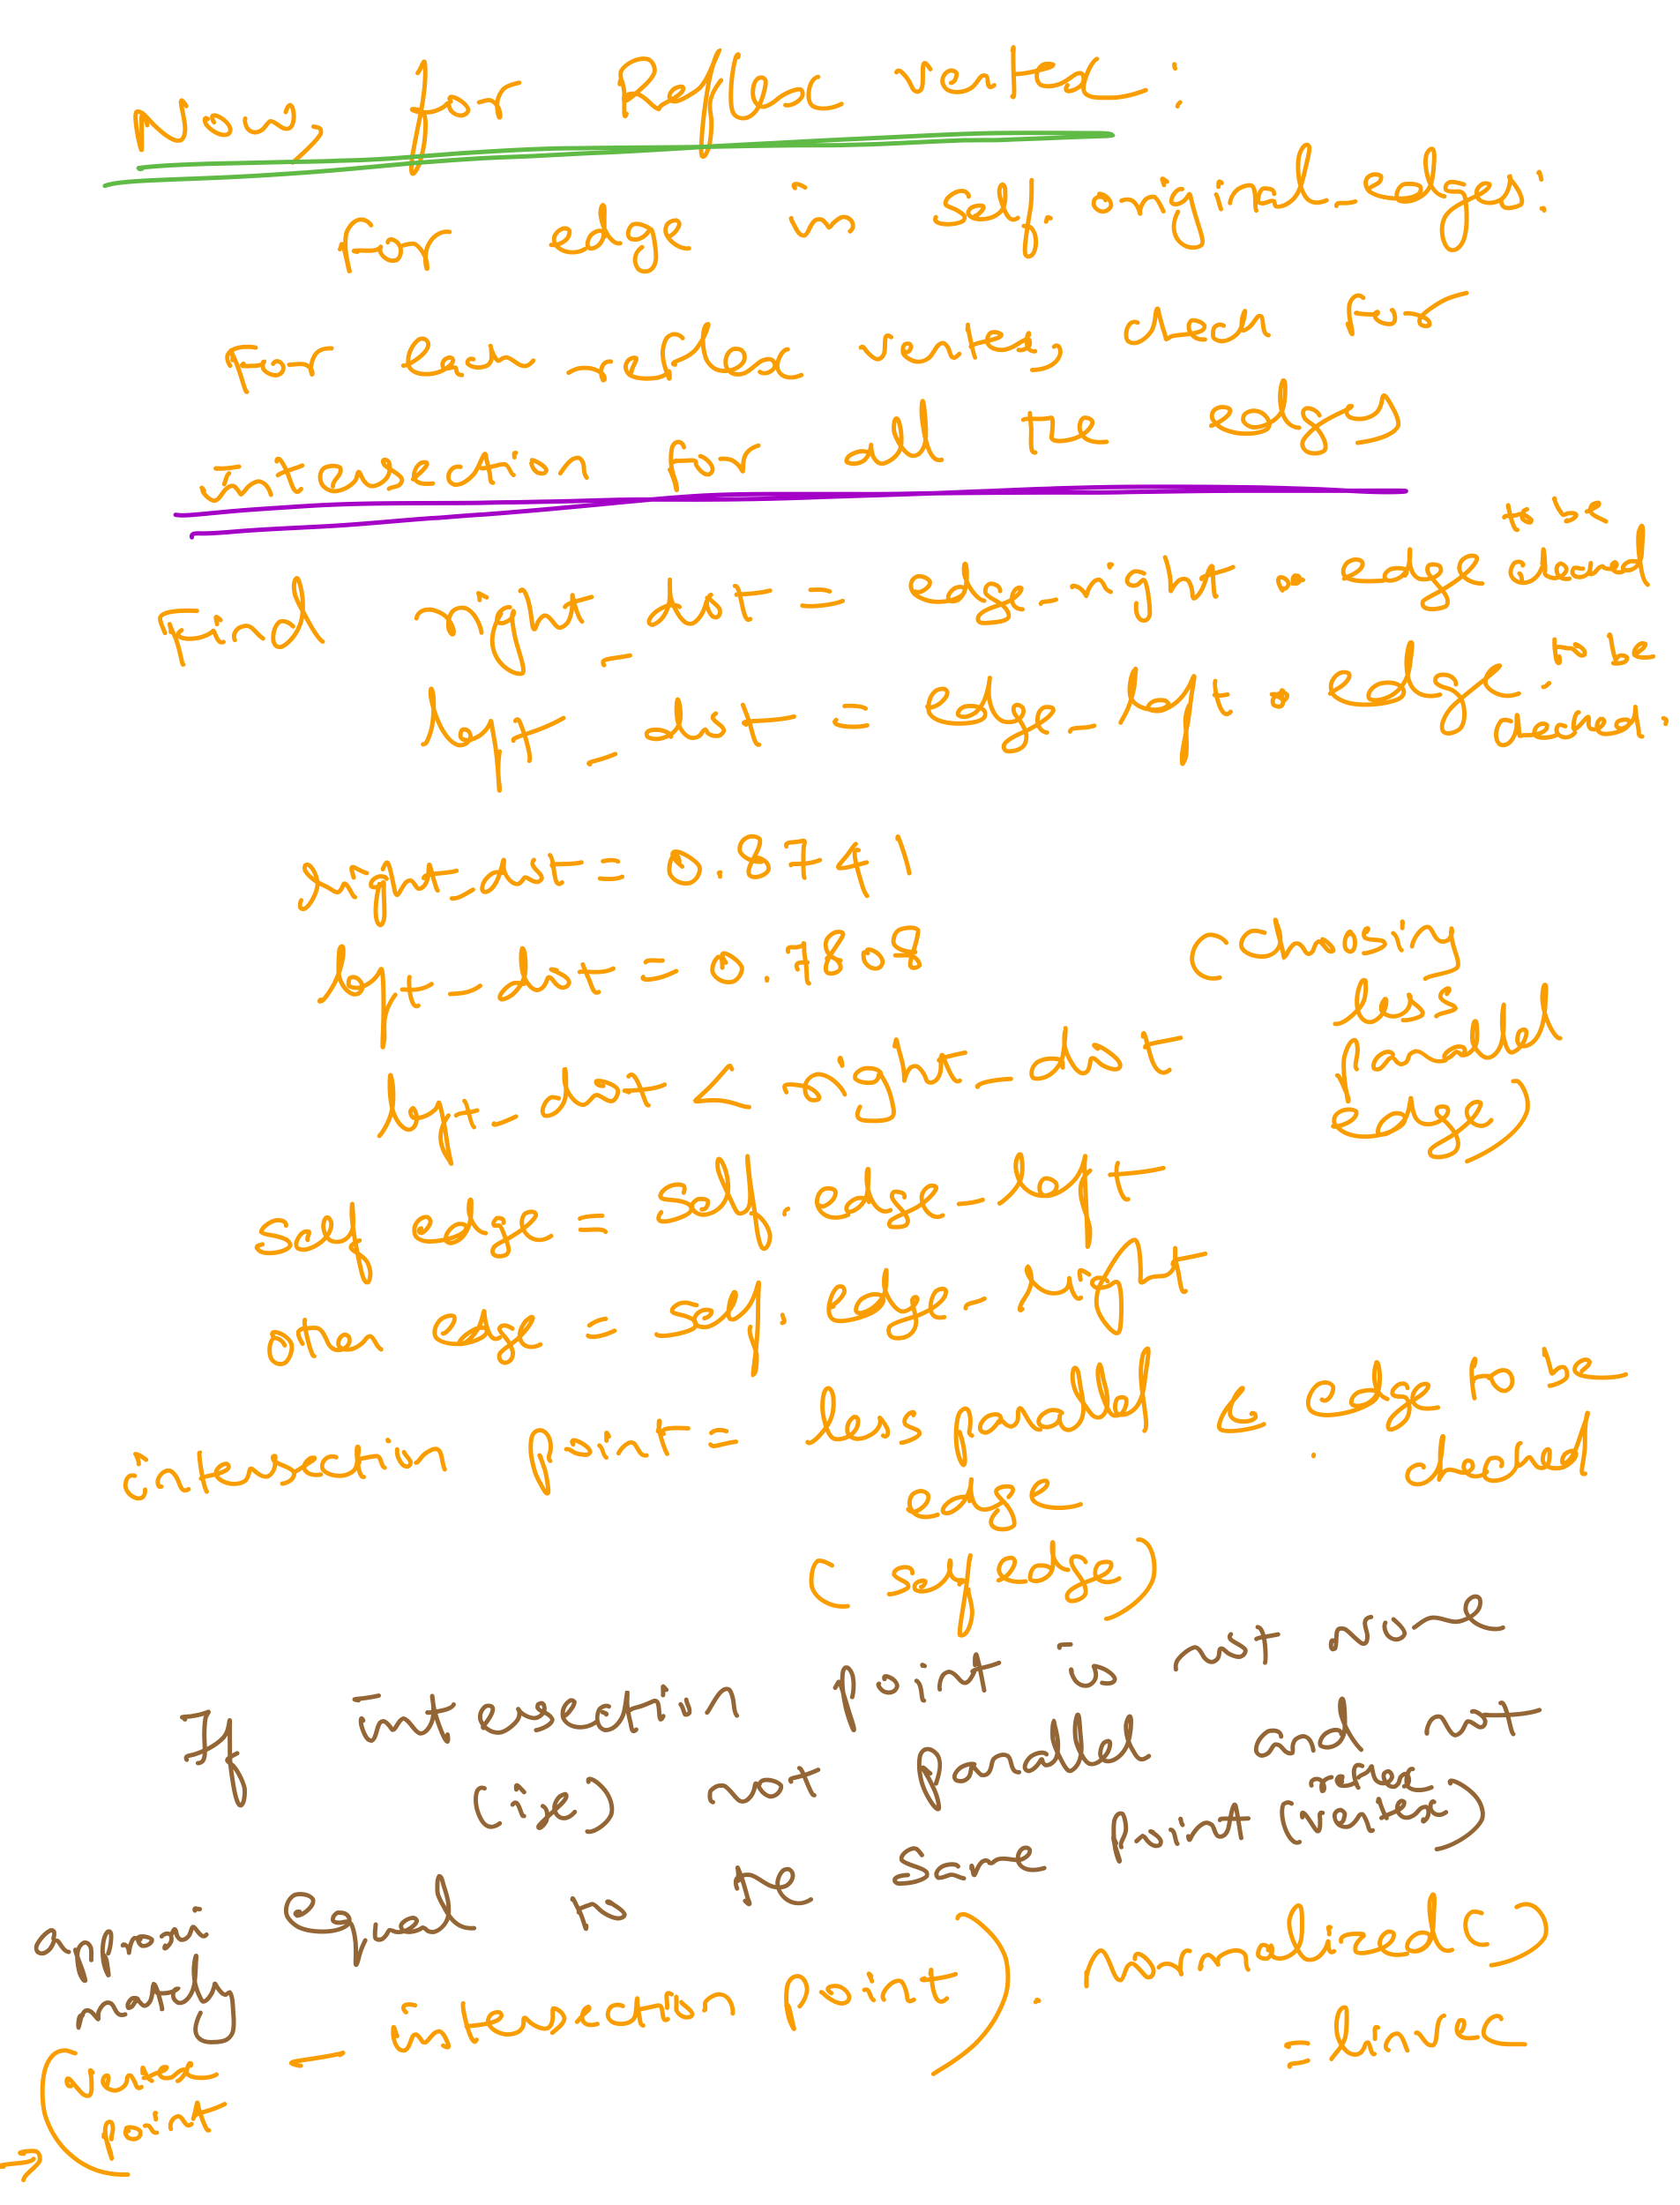 Now, for Reflec vertex :
For edge in self.original_edges:
For each reflex vertex, check for
intersection for all the edges
Find right_dot = edge_right . edge to be checked
left_dot = edge_left . edge to be checked.
right_dot = 0.8741
left_dot = 0.7808
left_dot < right_dot
(Choosing less parallel edge)
self edge = self.edge_left
other edge = self.edge_right
intersection point = less parallel & edge to be checked
edge
(self edge)
If intersection point is not none
(ie) not parallel and not
approximately equal to the same point (reflex vertex)
→ (vertex point - intersection point).normalized()
= linvec